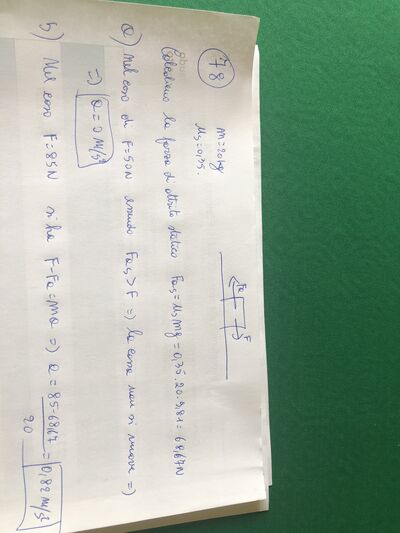 78
m = 20 kg
μs = 0,35.
Fa
F
Calcoliamo la forza di attrito statico Fas = μs mg = 0,35 · 20 · 9,81 = 68,67 N
a) Nel caso di F = 50 N essendo Fas > F => la cassa non si muove =>
=> a = 0 m/s²
b) Nel caso F = 85 N si ha F - Fa = ma => a = 85 - 68,67 / 20 = 0,82 m/s²